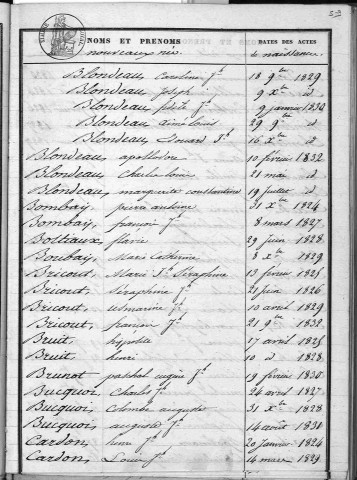 NOMS ET PRENOMS
DATES DES ACTES
nouveaux nés.
de naissance.
Blondeau Caroline fs 18 9bre 1829
Blondeau Joseph 9 Xbre id
Blondeau 9 janvier 1830
Blondeau Louis 29 9bre id
Blondeau Edouard 16 Xbre id
Blondeau apollidore 10 février 1832
Blondeau Charles louis 21 mai id
Blondeau marguerite constantine 19 juillet id
Bombay, pierre antoine 31 Xbre 1824
Bombay, françois fs 8 mars 1827
Boltraux, flavie 29 juin 1828
Boubay, Marie Catherine 8 Xbre 1829
Bricout, Marie Js Séraphine 13 février 1825
Bricout, Séraphine fs 21 juin 1826
Bricout, usmarine fs 10 avril 1829
Bricout, françois fs 21 9bre 1832
Bruit, hypolite 17 avril 1825
Bruit, henri 10 id 1828
Brunot paschal eugène fs 19 février 1830
Bucquoi, Charles fs 24 avril 1827
Bucquoi, Colombe auguste 31 Xbre 1828
Bucquoi, auguste fs 14 août 1830
Cardon, henri fs 20 janvier 1824
Cardon, Louis fs 14 mars 1829